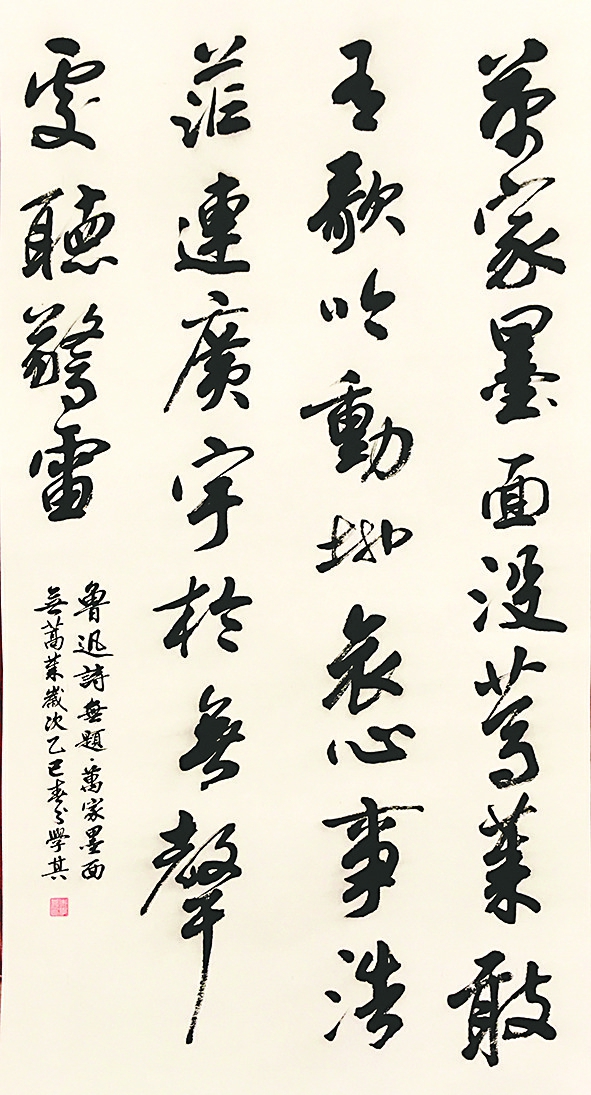 萬家墨面没蒿萊敢
有歌吟動地哀心事浩
茫連廣宇於無聲
處聽驚雷
魯迅詩無題·萬家墨面
無蒿萊歲次乙巳春分學其